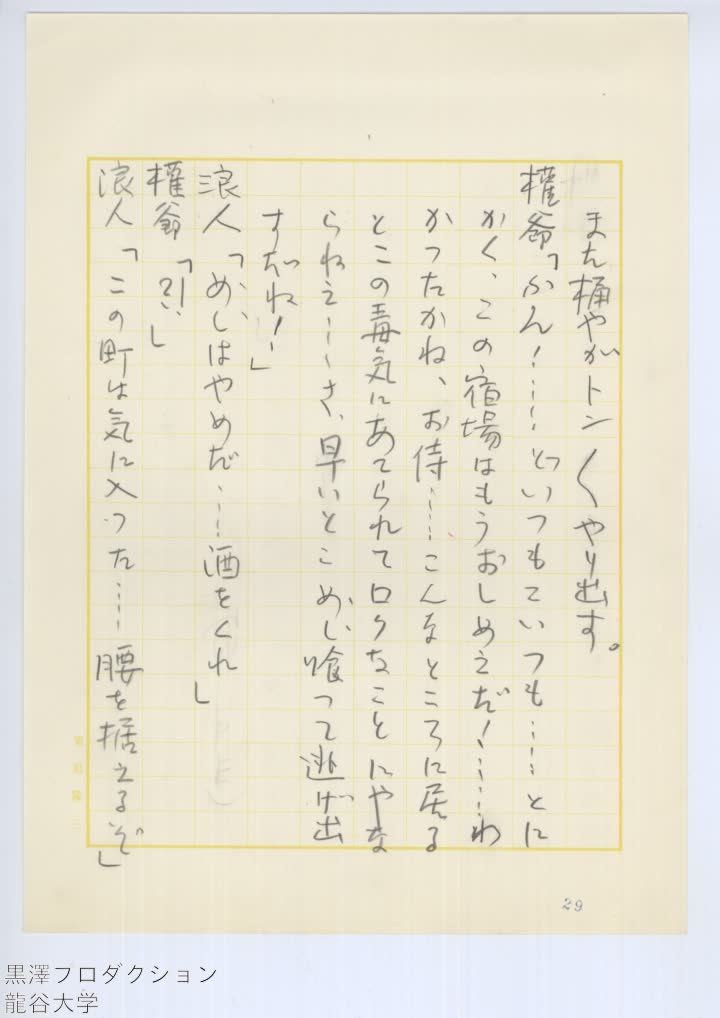 また桶やがトン〱やり出す。
権爺「ふん！……どいつもこいつも……とに
かく、この宿場はもうおしめえだ！……わ
かったかね、お侍……こんなところに居る
とこの毒気にあてられてロクなことにやな
られねえ……さ、早いとこめし喰って逃げ出
すだね！」
浪人「めしはやめだ……酒をくれ」
権爺「？！」
浪人「この町は気に入った……腰を据えるぞ」
29
黒澤プロダクション
龍谷大学